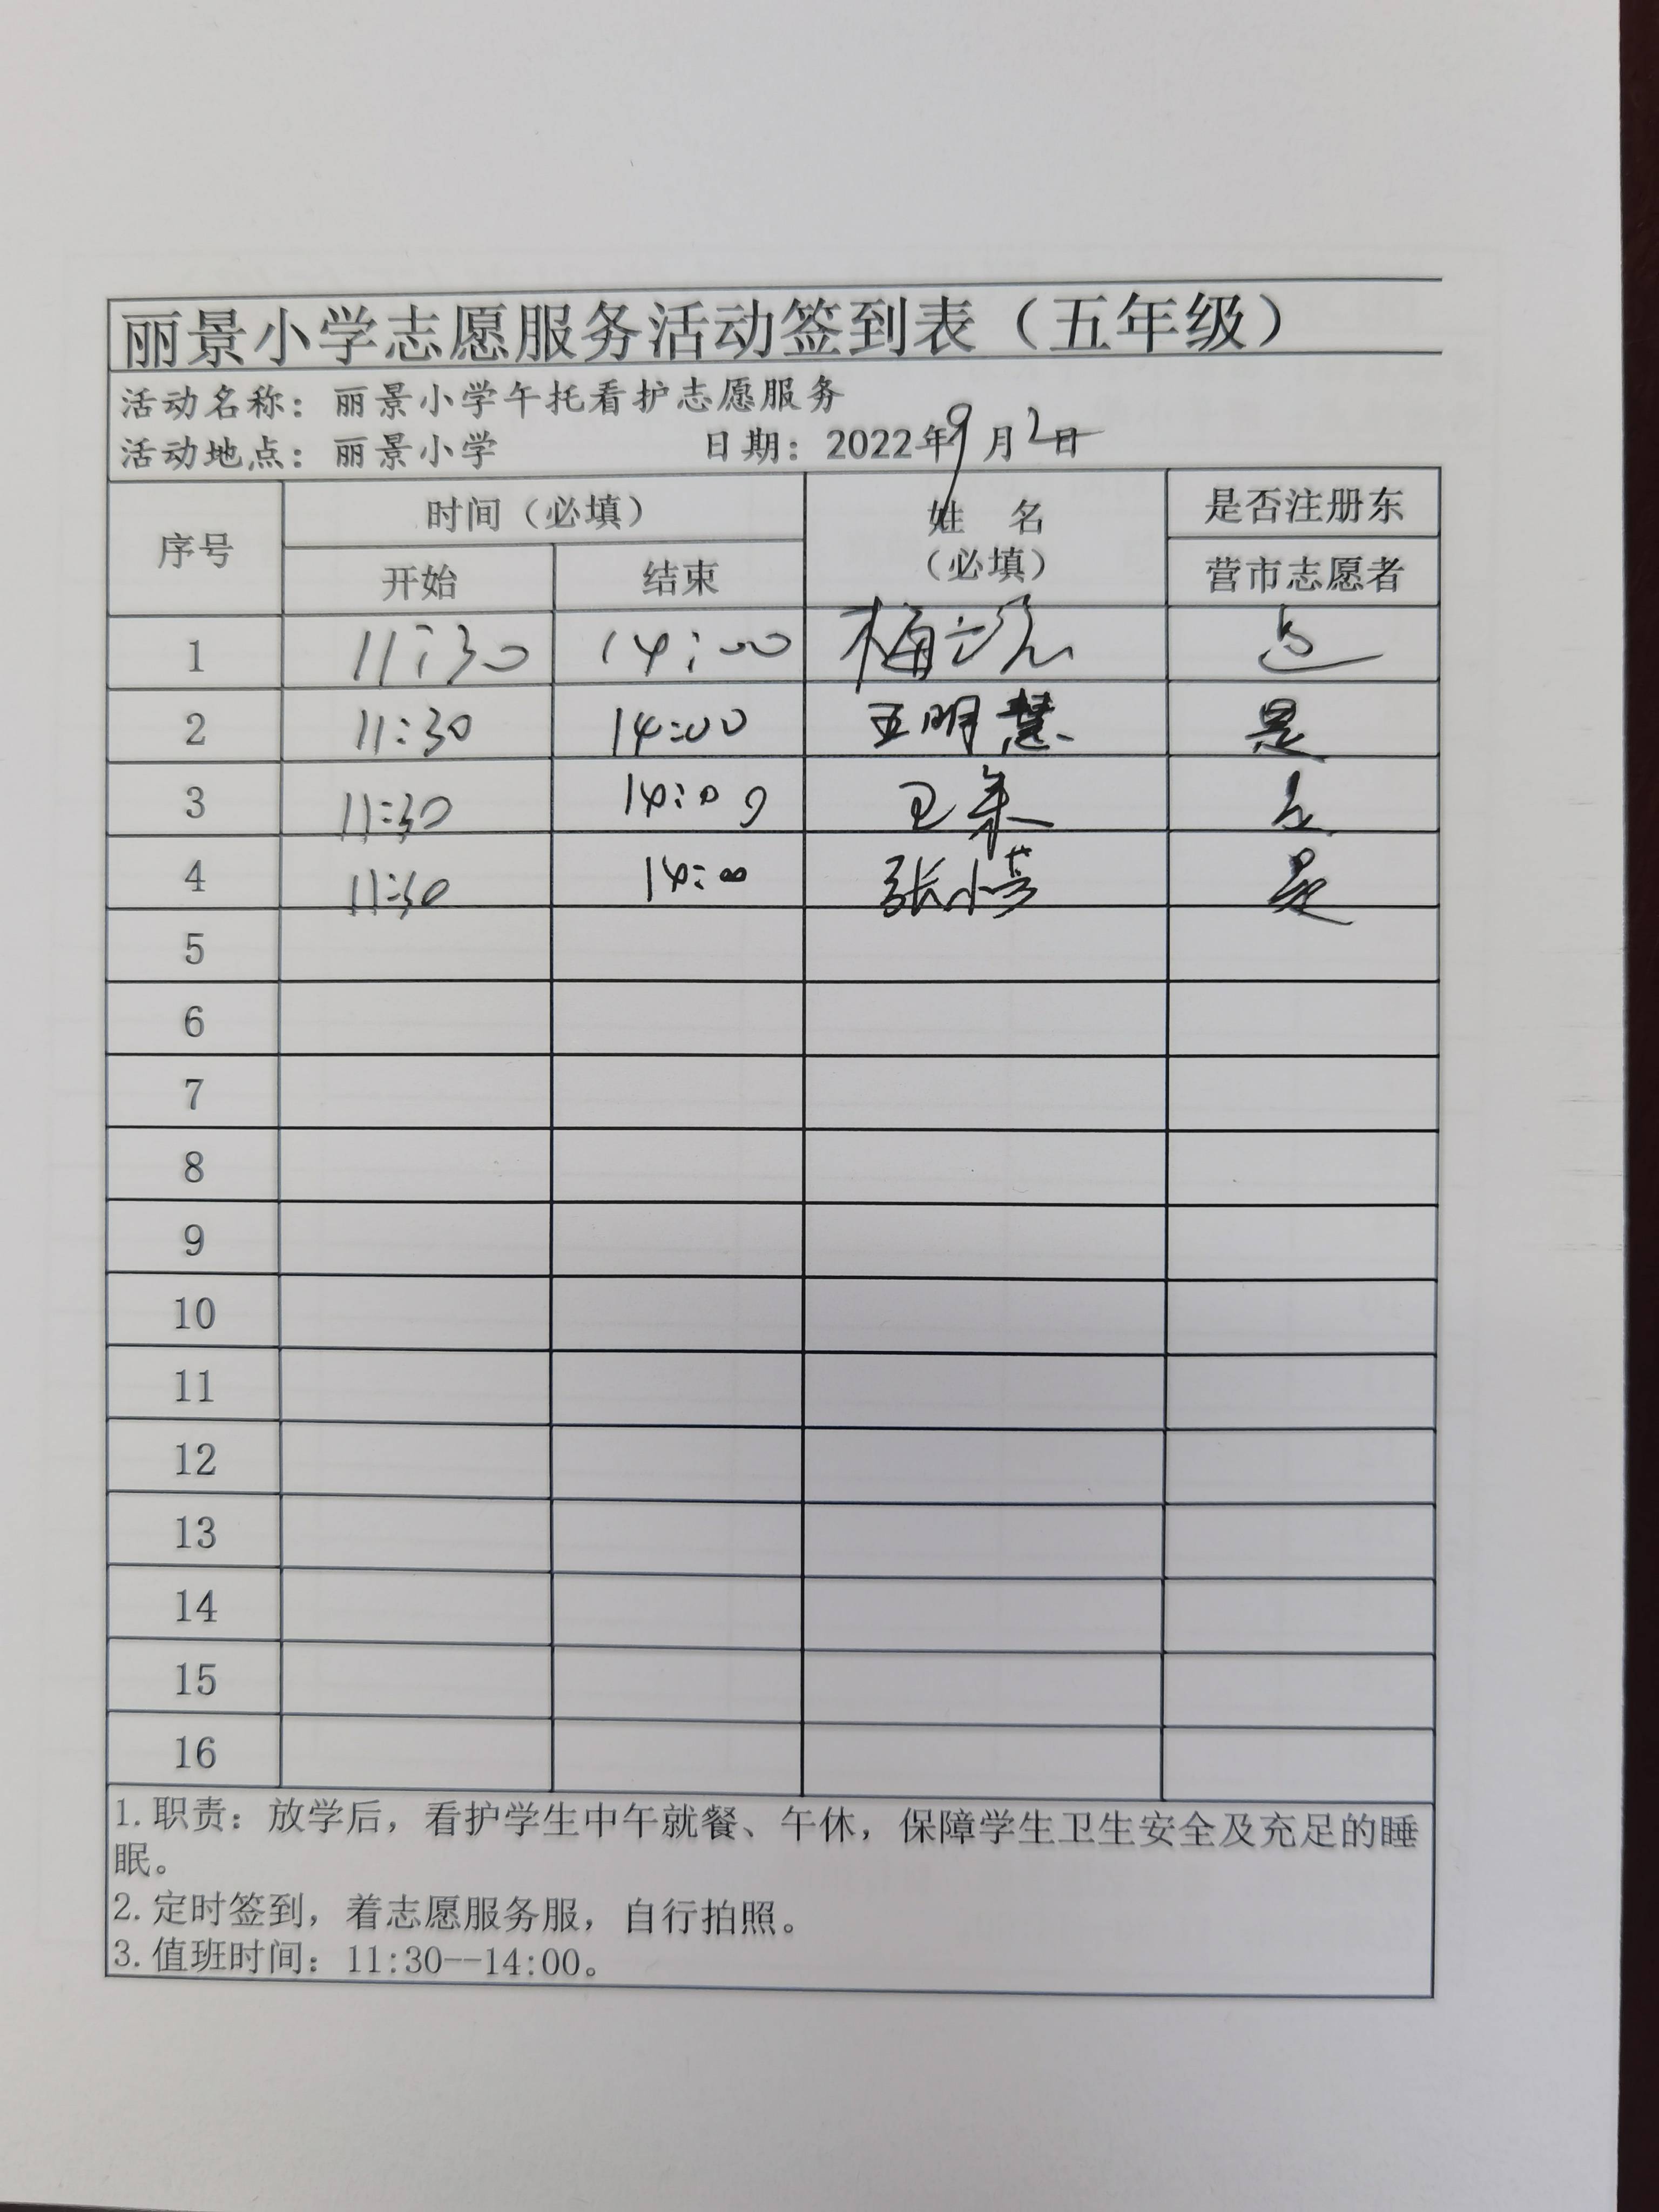 丽景小学志愿服务活动签到表（五年级）
活动名称：丽景小学午托看护志愿服务
活动地点：丽景小学 日期：2022年9月2日
序号 时间（必填） 姓 名（必填） 是否注册东营市志愿者
开始 结束
1 11:30 14:00 梅 是
2 11:30 14:00 王明慧 是
3 11:30 14:00 是
4 11:30 14:00 张小 是
5
6
7
8
9
10
11
12
13
14
15
16
1.职责：放学后，看护学生中午就餐、午休，保障学生卫生安全及充足的睡
眠。
2.定时签到，着志愿服务服，自行拍照。
3.值班时间：11:30--14:00。